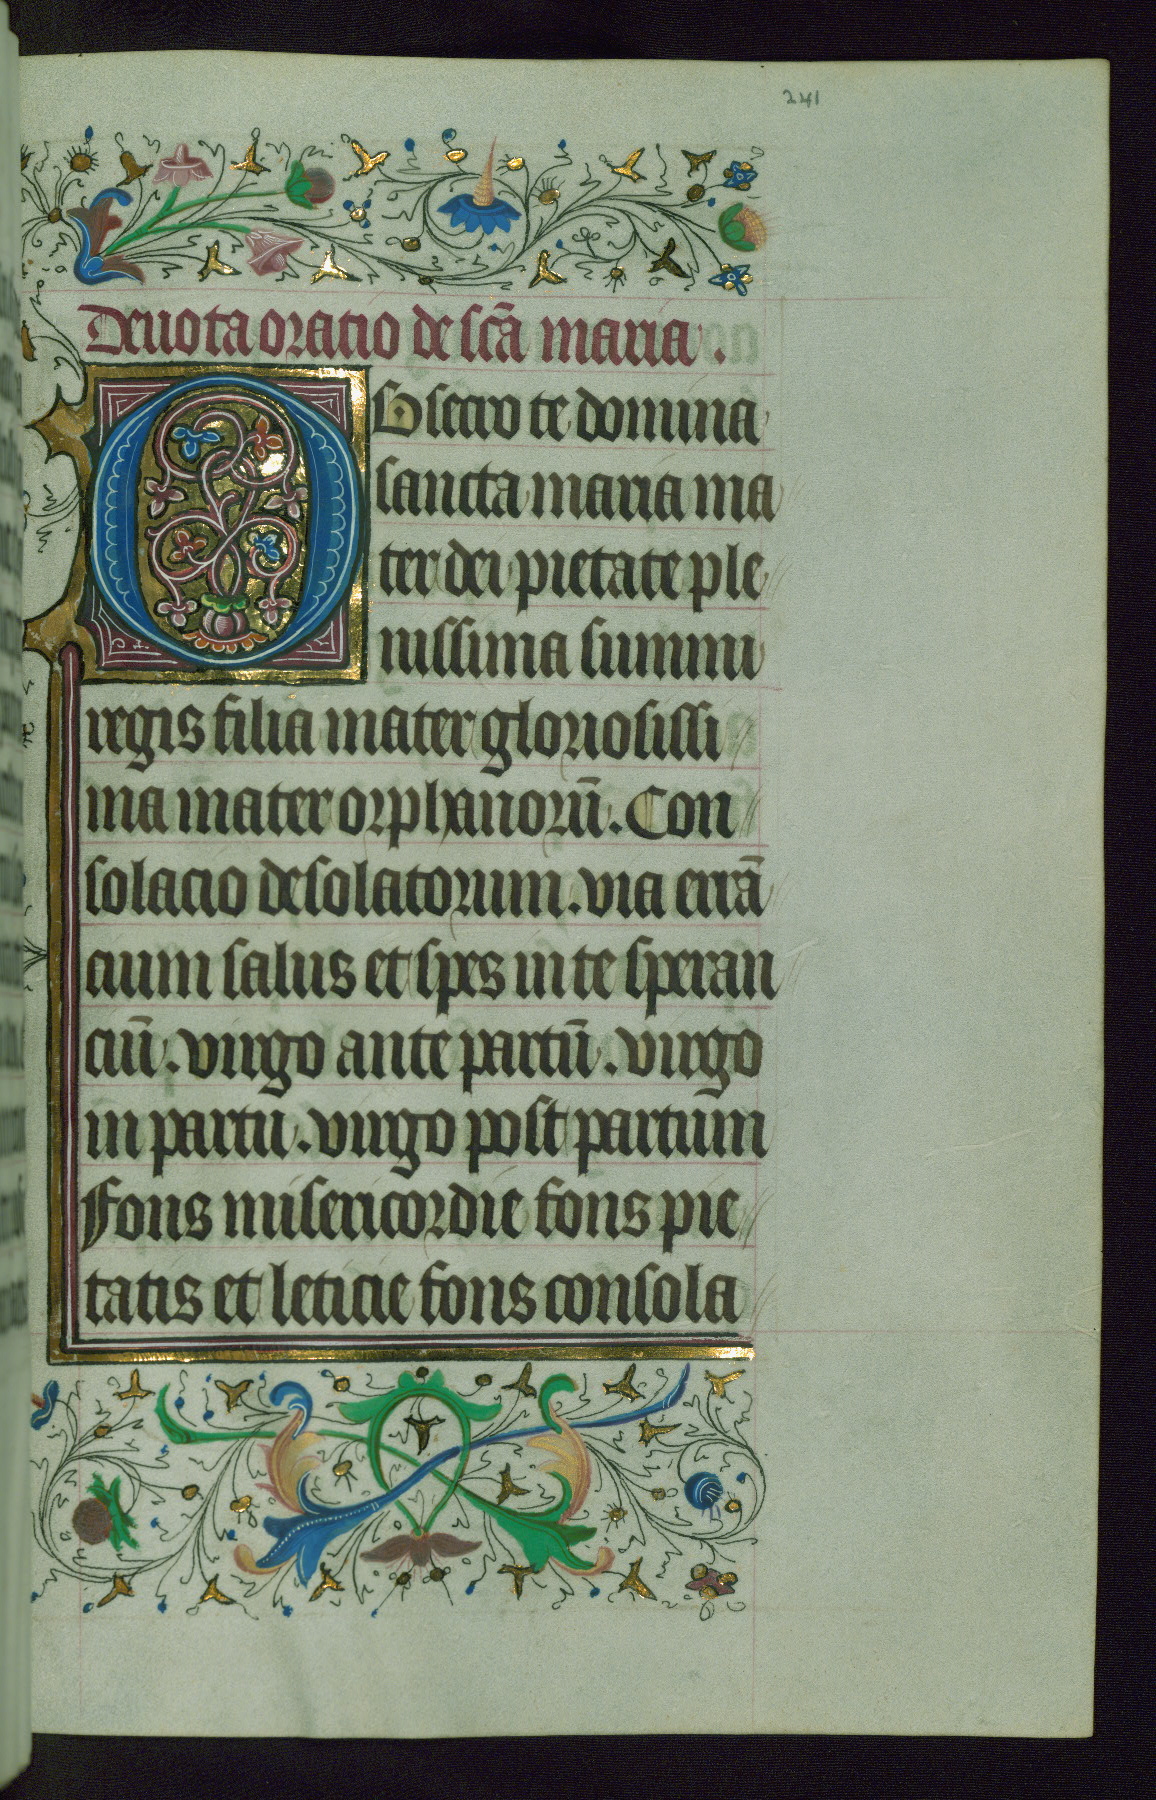 241
Deuota oratio de scā maria.
Obsecro te domina
sancta maria ma
ter dei pietate ple
nissima summi
regis filia mater gloriosissi
ma mater orphanorū. Con
solacio desolatorum. via errā
cium salus et spes in te speran
ciū. virgo ante partū. virgo
in partu. virgo post partum
Fons misericordie fons pie
tatis et leticie fons consola